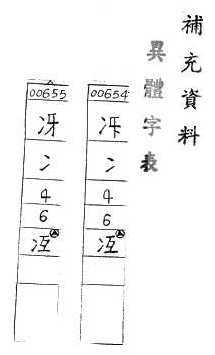 補充資料
異體字表
00654
冫
4
6
冱
00655
冴
冫
4
6
冱